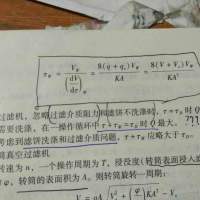 τw = Vw / (dV/dτ)E = 8(q+qe)Vw / KA = 8(V+Ve)Vw / KA²
过滤机，忽略过滤介质阻力和滤饼不洗涤时，τ=τD 时Q
需要洗涤，在一操作循环中τ+τw=τD 时Q最大。???
考虑到滤饼洗涤和过滤介质问题，τ+τw应略大于τD。
转真空过滤机
转速为n，一个操作周期为T，浸没度（转筒表面浸入
φ，转筒的表面积为A，则转筒旋转一周：